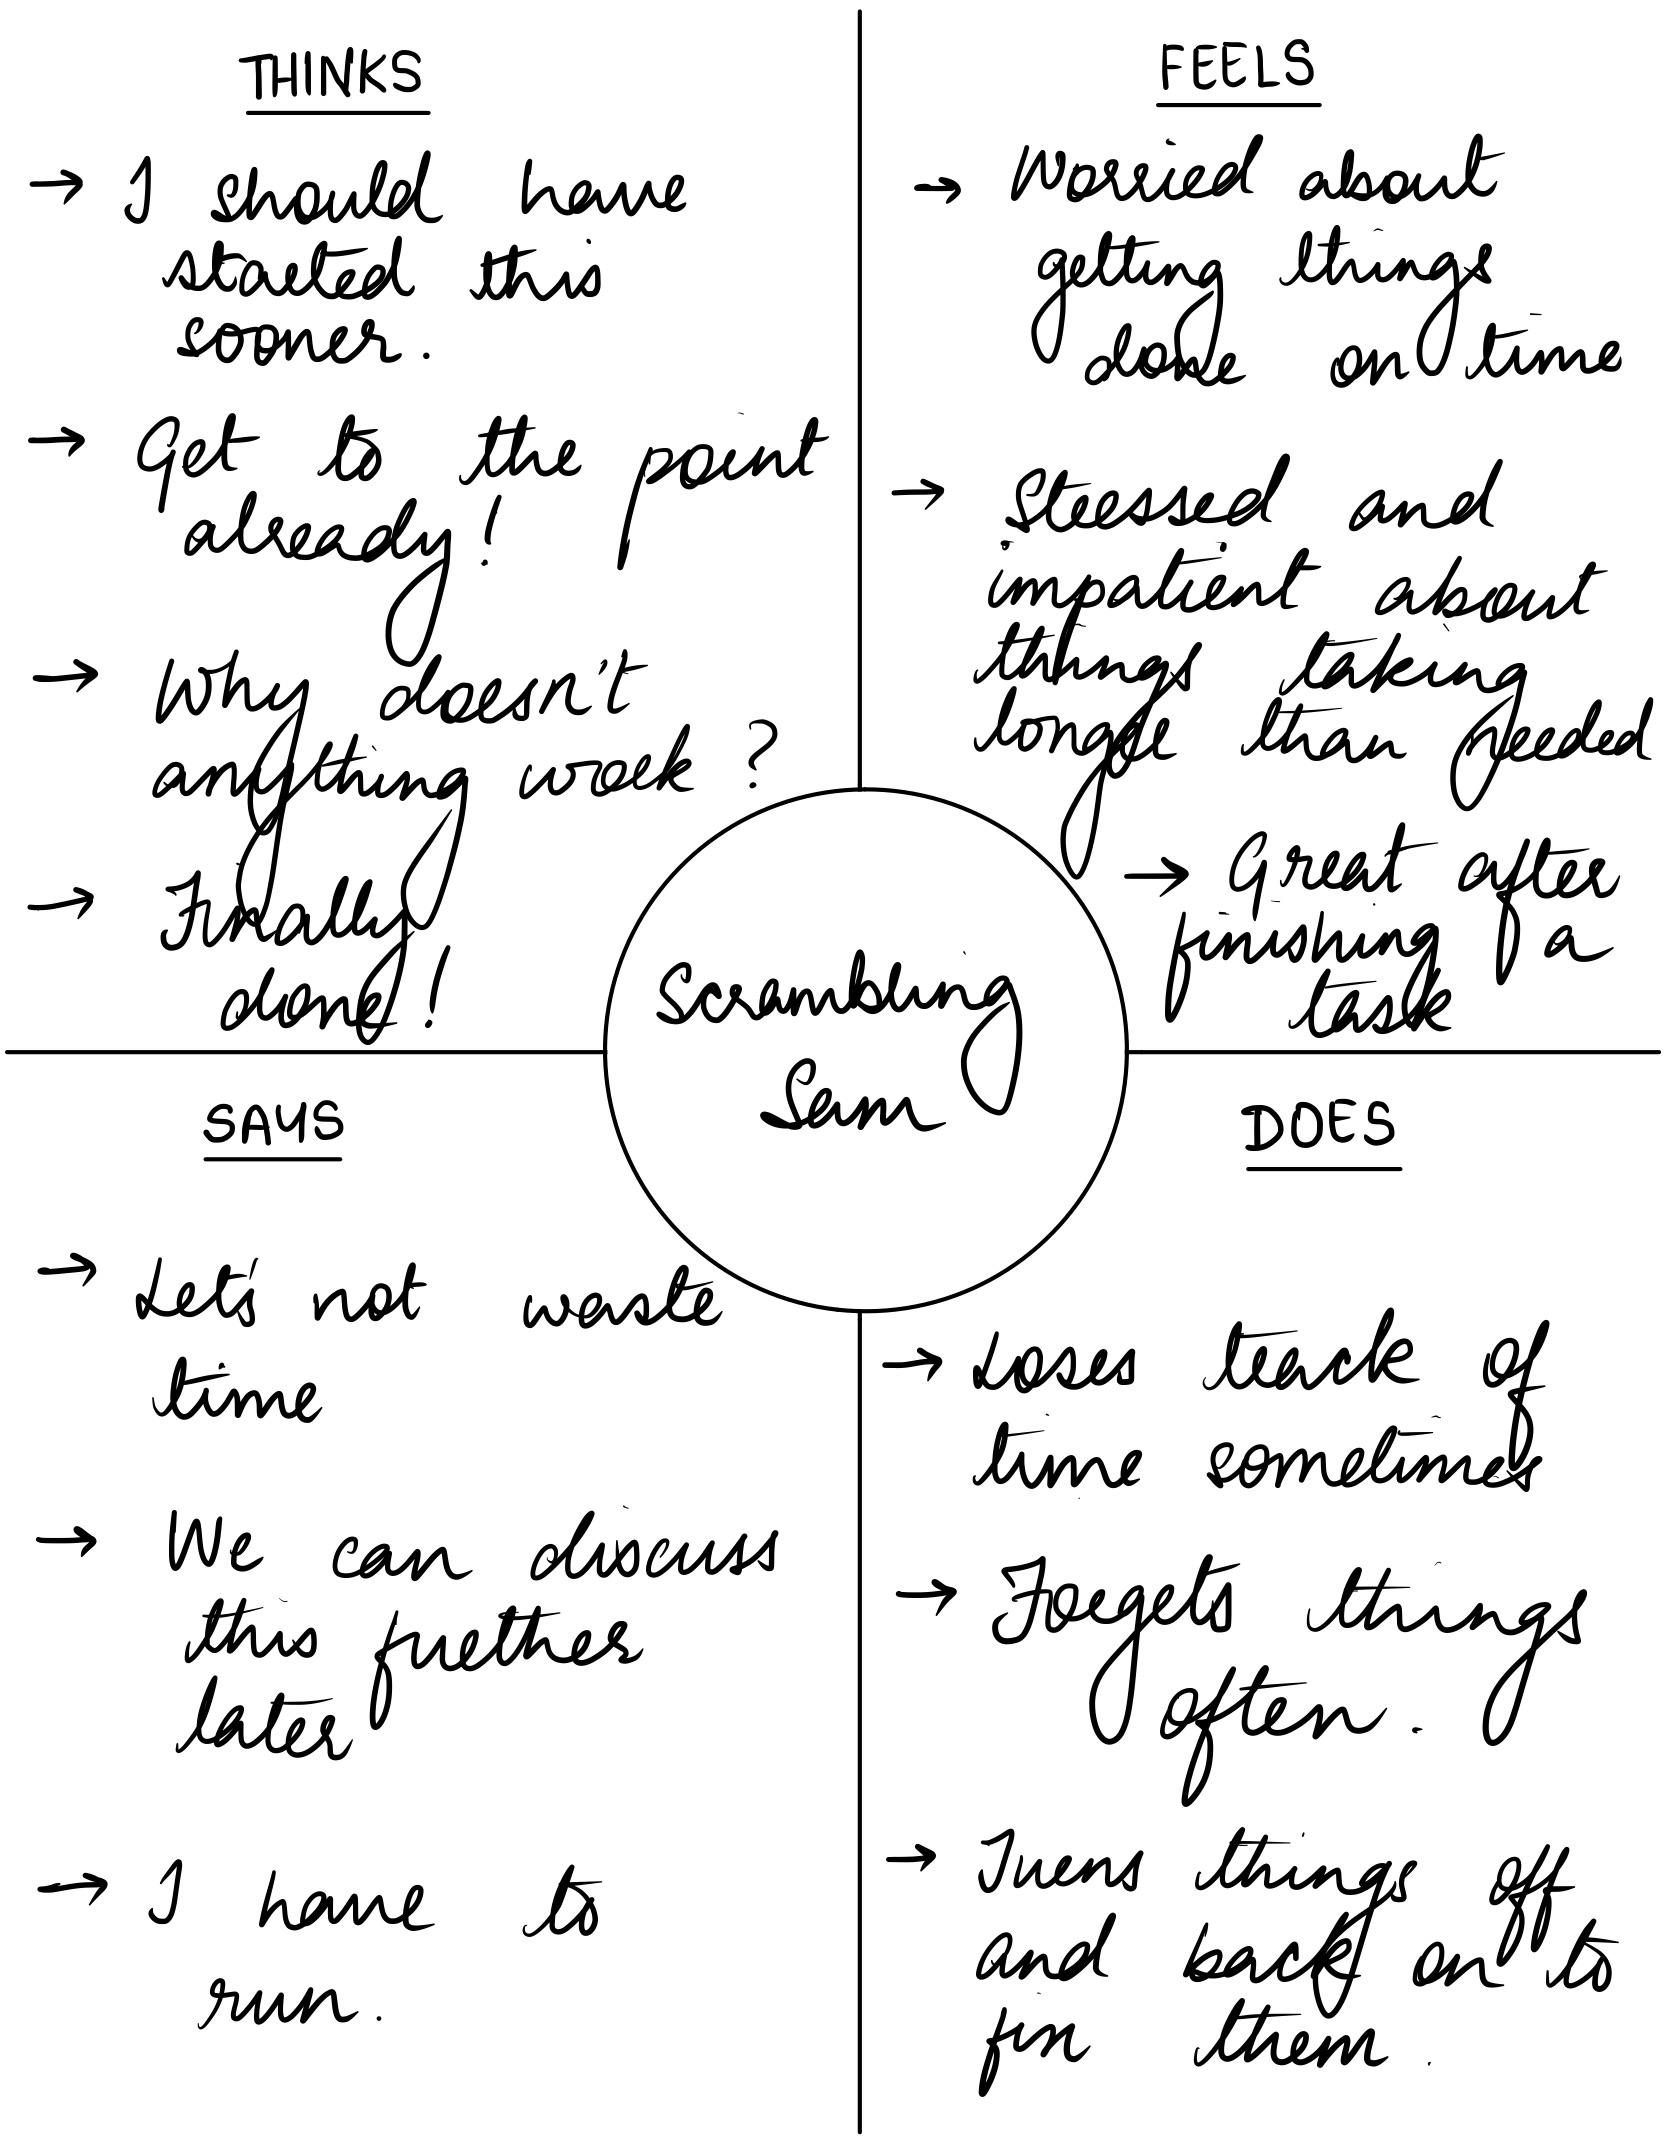 THINKS
→ I should have
started this
sooner.
→ Get to the point
already!
→ Why doesn't
anything work ?
→ Finally
done!
FEELS
→ Worried about
getting things
done on time
→ Stressed and
impatient about
things taking
longer than needed
→ Great after
finishing a
task
Scrambling
Sam
SAYS
→ Let's not waste
time
→ We can discuss
this further
later
→ I have to
run.
DOES
→ Loses track of
time sometimes
→ Forgets things
often.
→ Turns things off
and back on to
fix them.